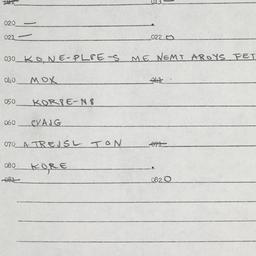 020 —
021 — 022
030 KO, NE-PLPE-S ME NEMT AROYS FET
040 MOX
050 KORPE-NS
060 CVAJG
070 A TREJSL TON
080 KO,RE
082 O